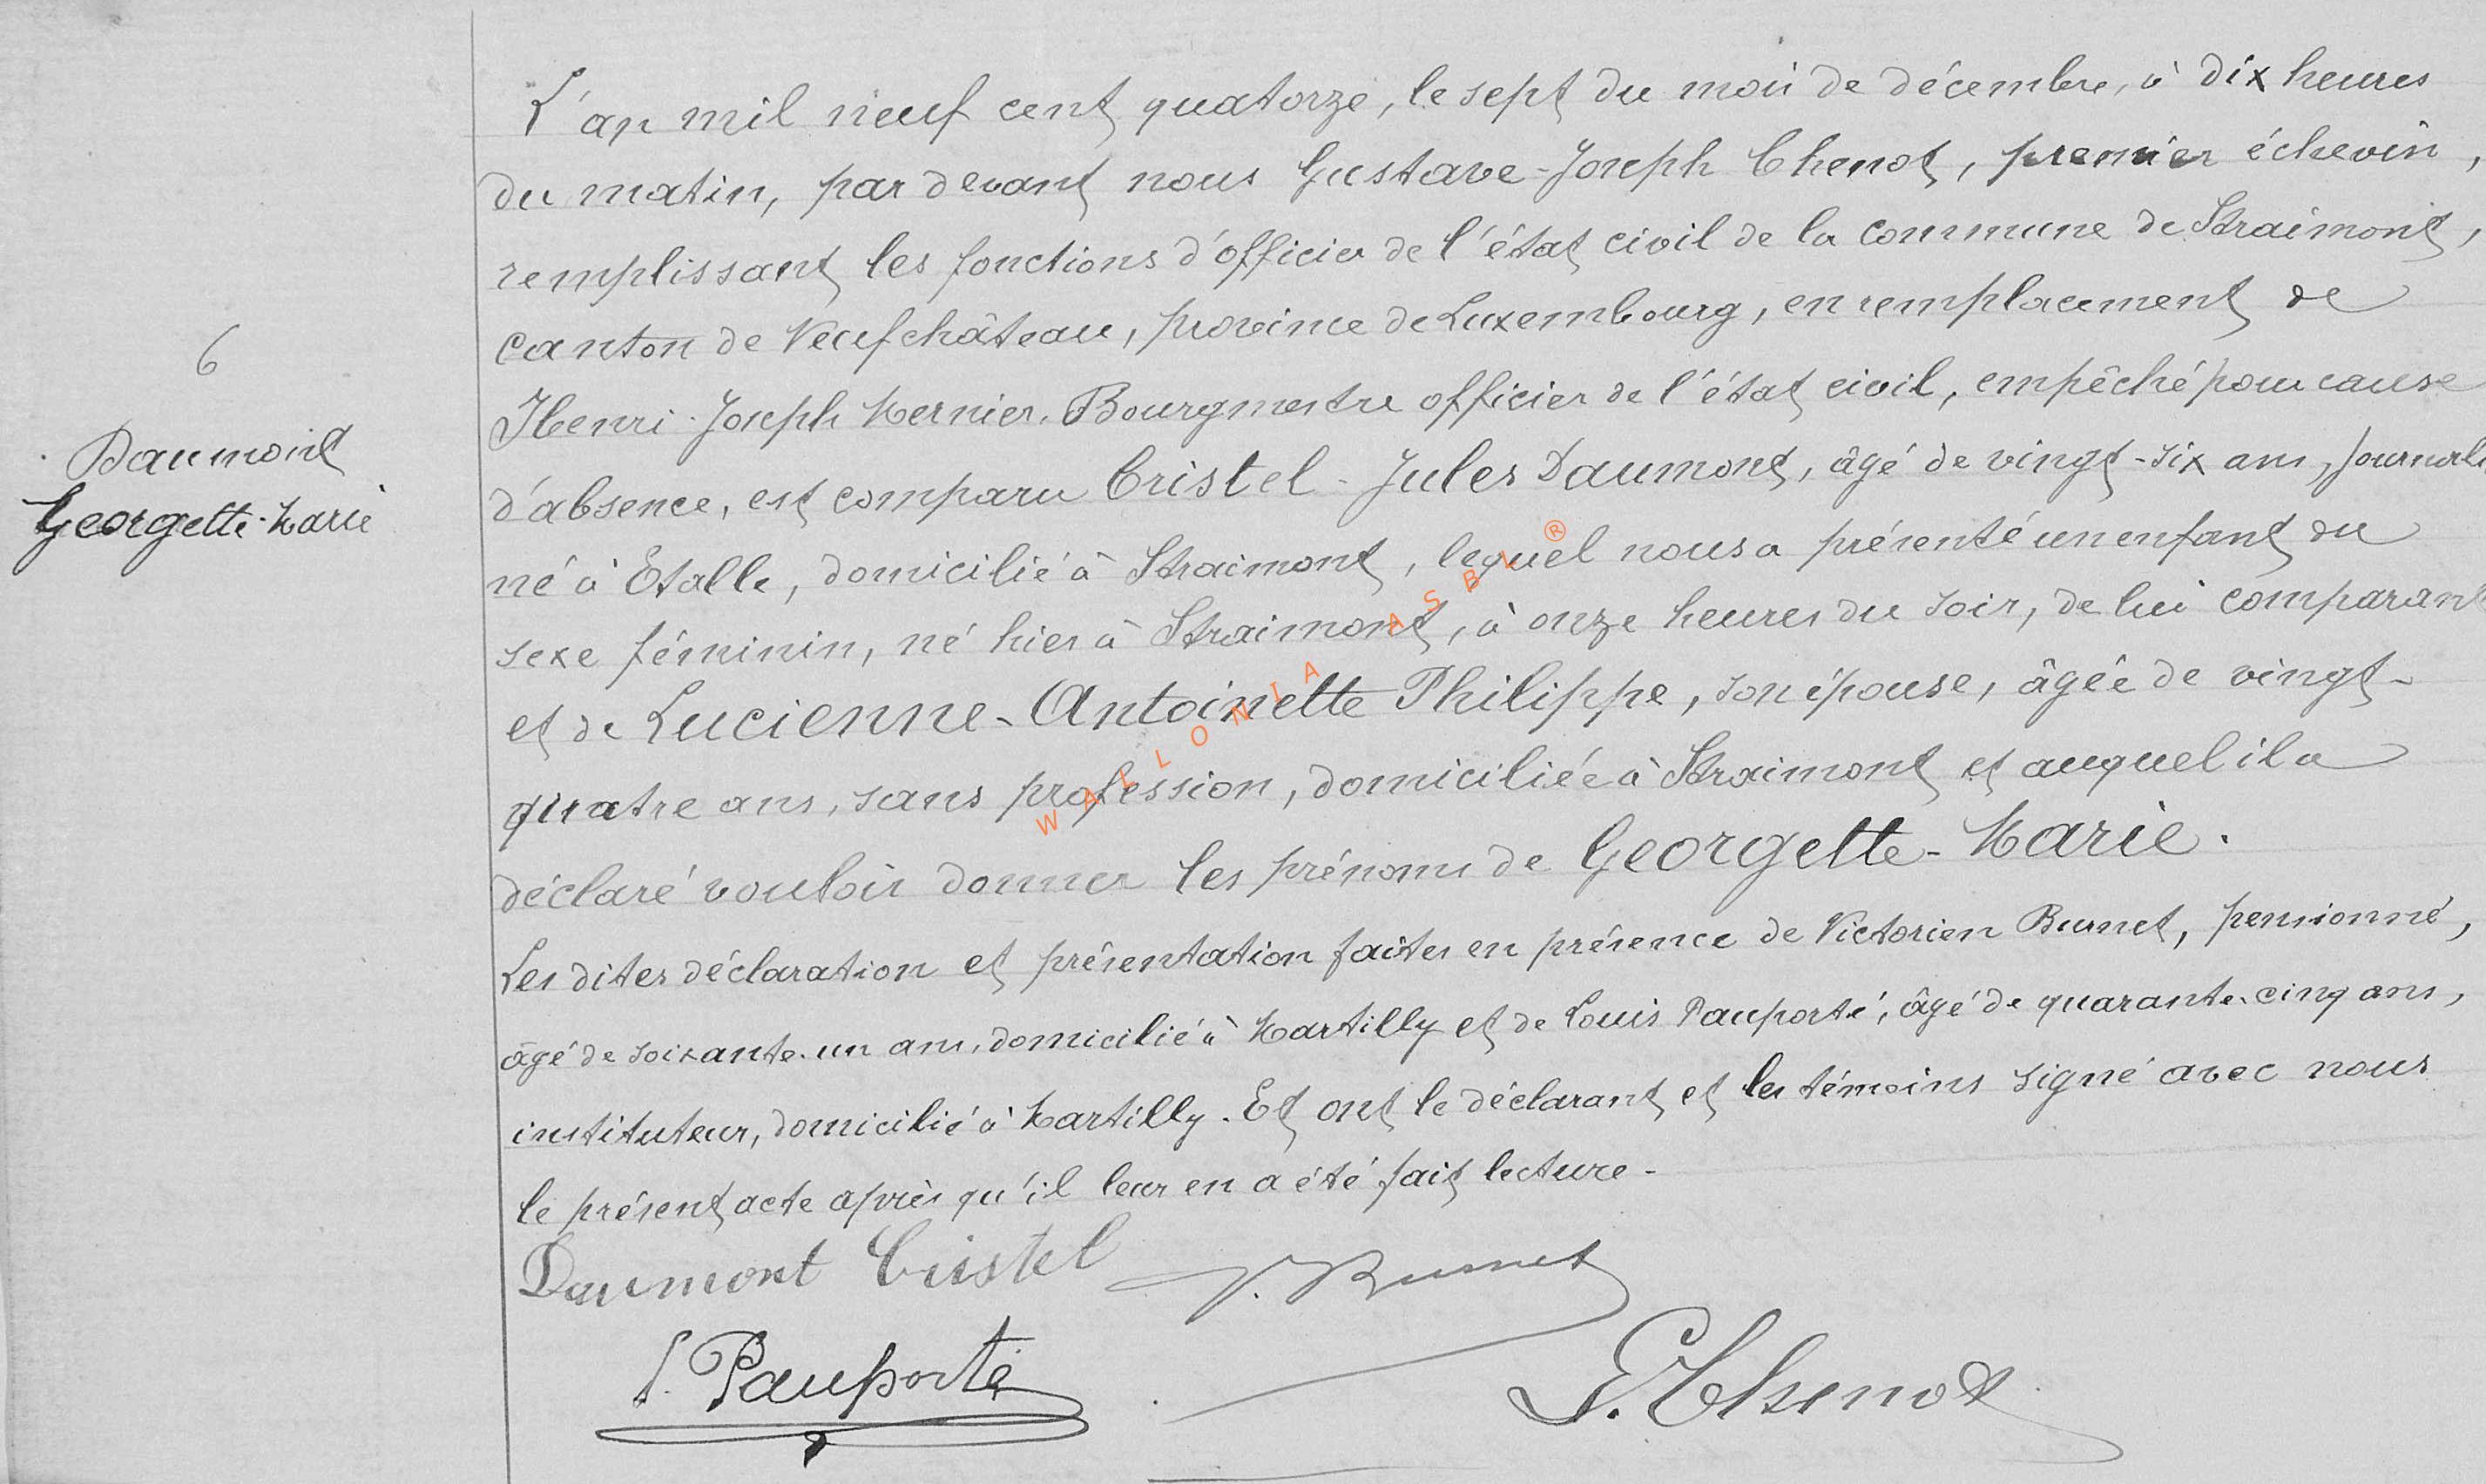 6
Daumont
Georgette-Marie
L'an mil neuf cent quatorze, le sept du mois de décembre, à dix heures
du matin, par devant nous Gustave-Joseph Chenot, premier échevin,
remplissant les fonctions d'officier de l'état civil de la commune de Straimont,
canton de Neufchâteau, province de Luxembourg, en remplacement de
Henri-Joseph Mernier, Bourgmestre officier de l'état civil, empêché pour cause
d'absence, est comparu Cristel-Jules Daumont, âgé de vingt-six ans, journali
né à Etalle, domicilié à Straimont, lequel nous a présenté un enfant du
sexe féminin, né hier à Straimont, à onze heures du soir, de lui comparant
et de Lucienne-Antoinette Philippe, son épouse, âgée de vingt-
quatre ans, sans profession, domiciliée à Straimont et auquel il a
déclaré vouloir donner les prénoms de Georgette-Marie.
Les dites déclaration et présentation faites en présence de Victorien Burnet, pensionné,
âgé de soixante-un ans, domicilié à Martilly et de Louis Pauporté, âgé de quarante-cinq ans,
instituteur, domicilié à Martilly. Et ont le déclarant et les témoins signé avec nous
le présent acte après qu'il leur en a été fait lecture.
Daumont Cristel
V. Burnet
L. Pauporté
G. Chenot
WALLONIA ASBL ®